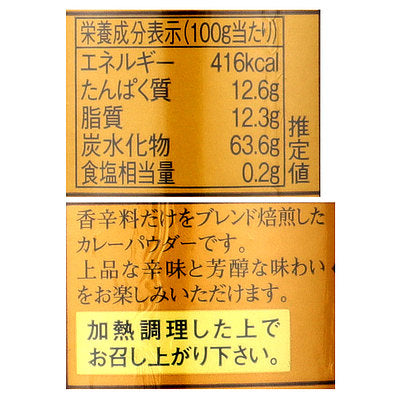 栄養成分表示(100g当たり)
エネルギー 416kcal
たんぱく質 12.6g
脂質 12.3g
炭水化物 63.6g
食塩相当量 0.2g
推定値
香辛料だけをブレンド焙煎した
カレーパウダーです。
上品な辛味と芳醇な味わい
をお楽しみいただけます。
加熱調理した上で
お召し上がり下さい。